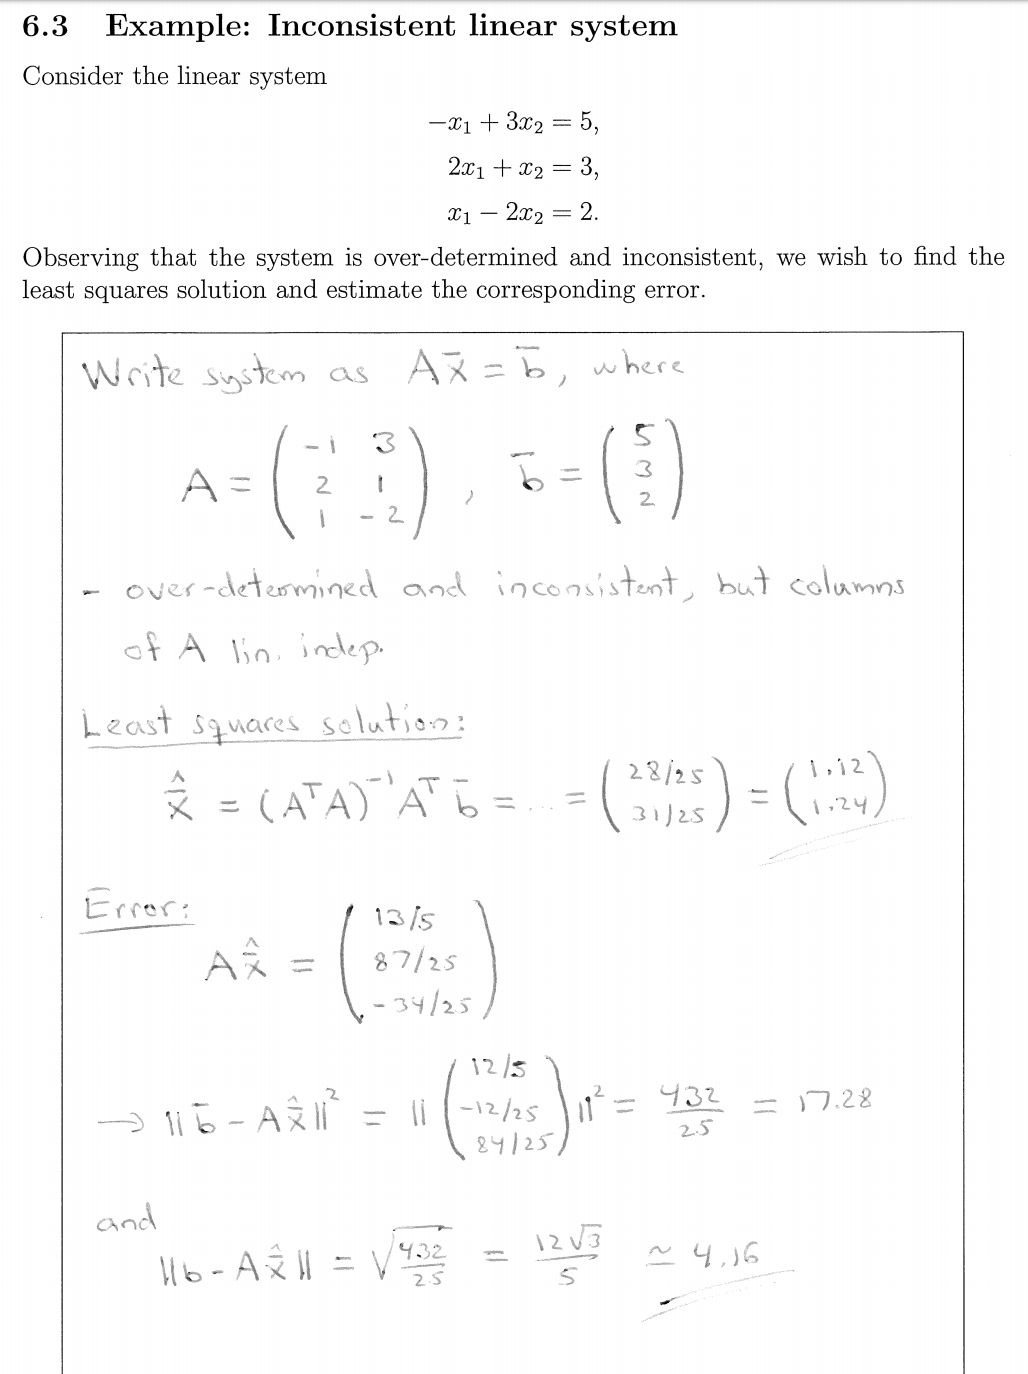 6.3 Example: Inconsistent linear system
Consider the linear system
−x₁ + 3x₂ = 5,
2x₁ + x₂ = 3,
x₁ − 2x₂ = 2.
Observing that the system is over-determined and inconsistent, we wish to find the
least squares solution and estimate the corresponding error.
Write system as Ax̄ = b̄, where
A = ( -1 3 ; 2 1 ; 1 -2 ), b̄ = ( 5 ; 3 ; 2 )
- over-determined and inconsistent, but columns
of A lin. indep.
Least squares solution:
x̄̂ = (AᵀA)⁻¹Aᵀ b̄ = ... = ( 28/25 ; 31/25 ) = ( 1,12 ; 1,24 )
Error:
Ax̄̂ = ( 13/5 ; 87/25 ; -34/25 )
→ ||b̄ - Ax̄̂||² = ||( 12/5 ; -12/25 ; 84/25 )||² = 432/25 = 17.28
and
||b - Ax̄̂|| = √(432/25) = 12√3/5 ≃ 4.16